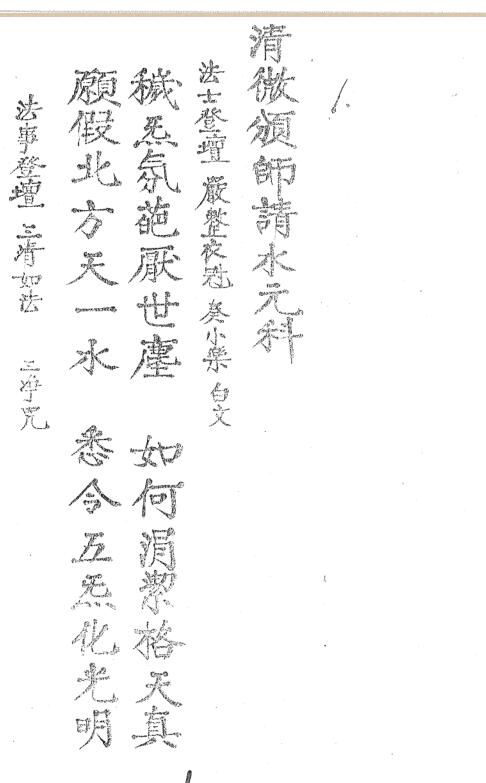 清微頒師請水元科
法士登壇 嚴整衣冠 奏小樂 白文
穢炁氛葩厭世塵 如何涓潔格天真
願假北方天一水 悉令五炁化光明
法事登壇 三清如法 三淨咒